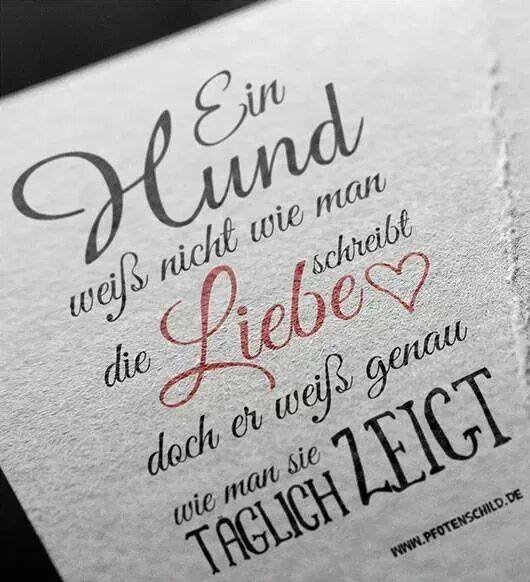 Ein
Hund
weiß nicht wie man
die Liebe schreibt
doch er weiß genau
wie man sie
TÄGLICH ZEIGT
WWW.PFOTENSCHILD.DE